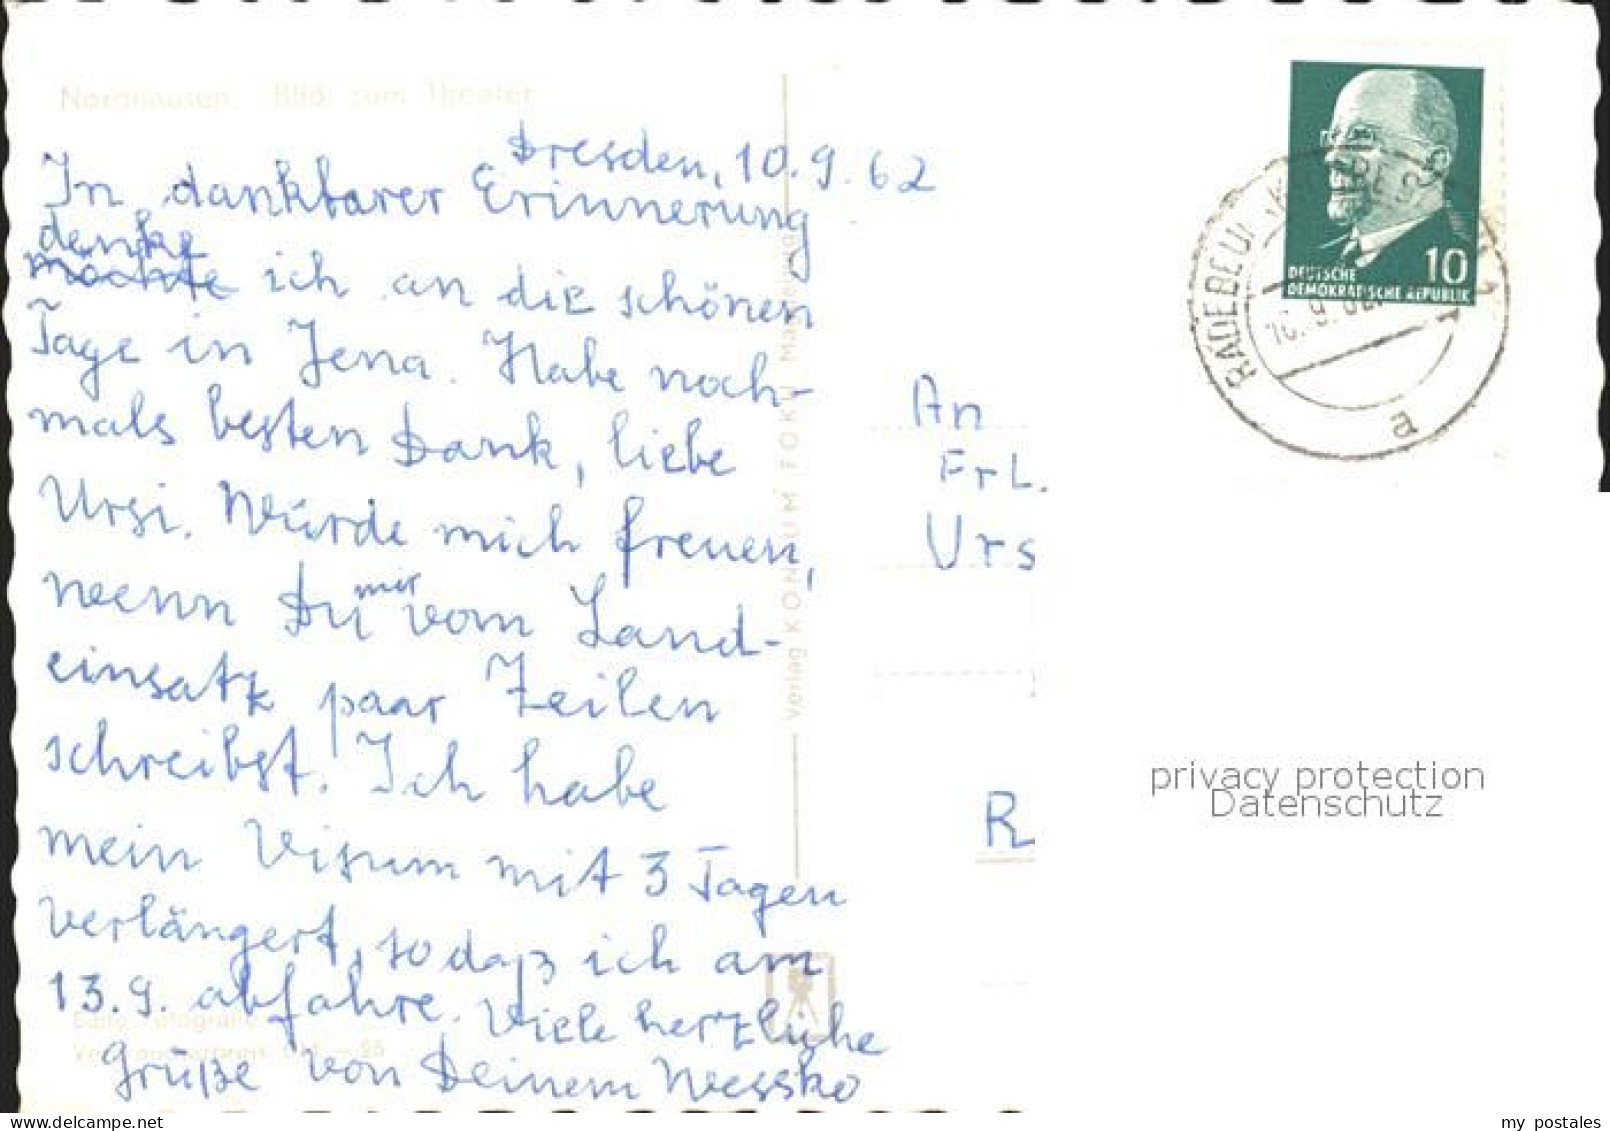 Nordhausen Blick zum Theater
Dresden, 10.9.62
In dankbarer Erinnerung
denke
möchte ich an die schönen
Tage in Jena. Habe noch-
mals besten Dank, liebe
Ursi. Würde mich freuen,
wenn Du mir vom Land-
einsatz paar Zeilen
schreibst. Ich habe
mein Visum mit 3 Tagen
verlängert, so daß ich am
13.9. abfahre. Viele herzliche
Grüße von Deinem Wessko
Echte Fotografie
Verbraucherpreis
Verlag KONSUM FOKU Magdeburg
10
DEUTSCHE
DEMOKRATISCHE REPUBLIK
RADEBEUL
10.9.62
a
An
Frl.
Urs
R
privacy protection
Datenschutz
my postales